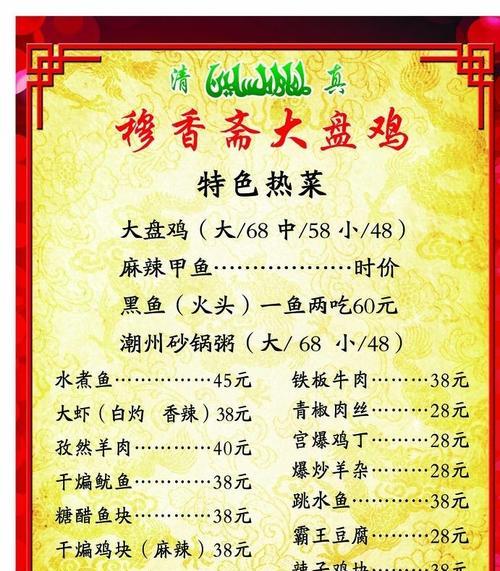 清 真
穆香斋大盘鸡
特色热菜
大盘鸡（大/68 中/58 小/48）
麻辣甲鱼…………………时价
黑鱼（火头）一鱼两吃60元
潮州砂锅粥（大/ 68 小/48）
水煮鱼……………45元
大虾（白灼 香辣）38元
孜然羊肉…………40元
干煸鱿鱼…………38元
糖醋鱼块…………38元
干煸鸡块（麻辣）38元
铁板牛肉…………38元
青椒肉丝…………28元
宫爆鸡丁…………28元
爆炒羊杂…………28元
跳水鱼……………38元
霸王豆腐…………28元
辣子鸡块…………38元